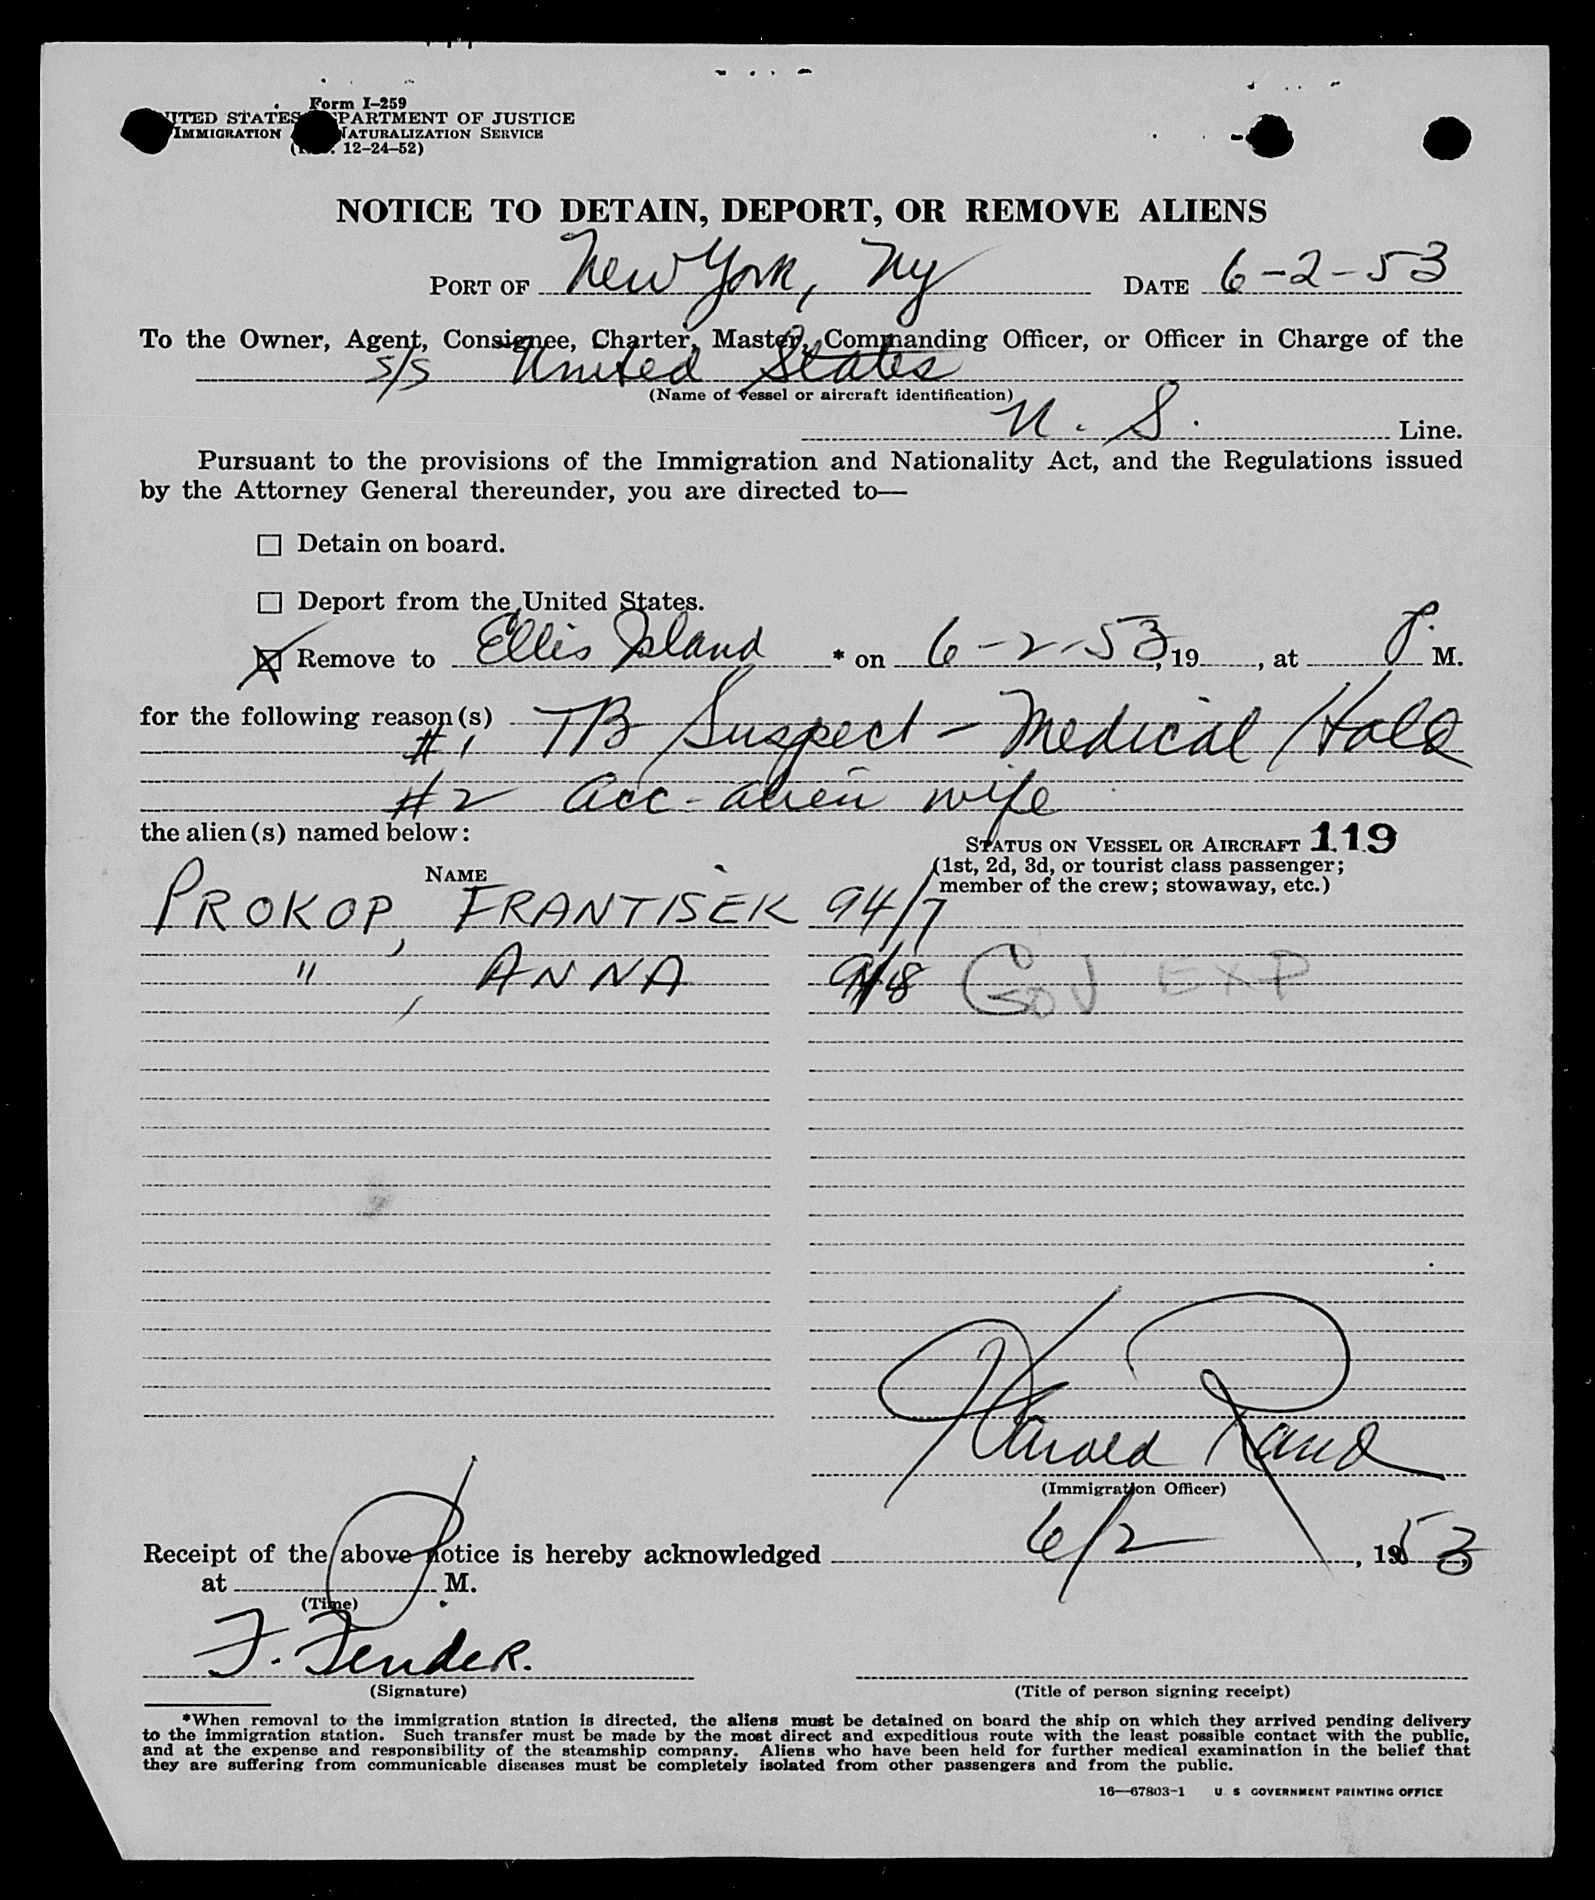 Form I-259
UNITED STATES DEPARTMENT OF JUSTICE
IMMIGRATION NATURALIZATION SERVICE
12-24-52)
NOTICE TO DETAIN, DEPORT, OR REMOVE ALIENS
PORT OF New York, Ny DATE 6-2-53
To the Owner, Agent, Consignee, Charter, Master, Commanding Officer, or Officer in Charge of the
s/s United States
(Name of vessel or aircraft identification)
U. S. Line.
Pursuant to the provisions of the Immigration and Nationality Act, and the Regulations issued
by the Attorney General thereunder, you are directed to—
Detain on board.
Deport from the United States.
Remove to Ellis Island * on 6-2-53, 19 , at P. M.
for the following reason(s)
#1 TB Suspect - Medical Hold
#2 acc-alien wife
the alien(s) named below:
STATUS ON VESSEL OR AIRCRAFT 119
(1st, 2d, 3d, or tourist class passenger;
member of the crew; stowaway, etc.)
NAME
PROKOP, FRANTISEK 94/7
" , ANNA 94/8 GOV EXP
Harold Rand
(Immigration Officer)
Receipt of the above notice is hereby acknowledged 6/2, 1953,
at P M.
(Time)
F. Fender.
(Signature)
(Title of person signing receipt)
*When removal to the immigration station is directed, the aliens must be detained on board the ship on which they arrived pending delivery
to the immigration station. Such transfer must be made by the most direct and expeditious route with the least possible contact with the public,
and at the expense and responsibility of the steamship company. Aliens who have been held for further medical examination in the belief that
they are suffering from communicable diseases must be completely isolated from other passengers and from the public.
16—67803-1 U S GOVERNMENT PRINTING OFFICE